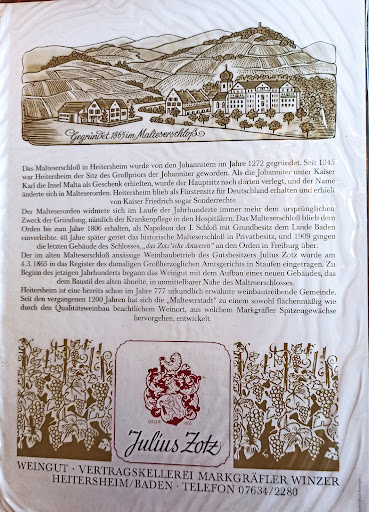 Gegründet 1865 im Malteserschloß
Das Malteserschloß in Heitersheim wurde von den Johannitern im Jahre 1272 gegründet. Seit 1345
war Heitersheim der Sitz des Großpriors der Johanniter geworden. Als die Johanniter unter Kaiser
Karl die Insel Malta als Geschenk erhielten, wurde der Hauptsitz nach dorten verlegt, und der Name
änderte sich in Malteserorden. Heitersheim blieb als Fürstensitz für Deutschland erhalten und erhielt
von Kaiser Friedrich sogar Sonderrechte.
Der Malteserorden widmete sich im Laufe der Jahrhunderte immer mehr dem ursprünglichen
Zweck der Gründung, nämlich der Krankenpflege in den Hospitälern. Das Malteserschloß blieb dem
Orden bis zum Jahre 1806 erhalten, als Napoleon I. Schloß mit Grundbesitz dem Lande Baden
einverleibte. 40 Jahre später geriet das historische Malteserschloß in Privatbesitz, und 1909 gingen
die letzten Gebäude des Schlosses, „das Zotz'sche Anwesen" an den Orden in Freiburg über.
Der im alten Malteserschloß ansässige Weinbaubetrieb des Gutsbesitzers Julius Zotz wurde am
4.3.1865 in das Register des damaligen Großherzoglichen Amtsgerichts in Staufen eingetragen. Zu
Beginn des jetzigen Jahrhunderts begann das Weingut mit dem Aufbau eines neuen Gebäudes, das
dem Baustil des alten ähnelte, in unmittelbarer Nähe des Malteserschlosses.
Heitersheim ist eine bereits schon im Jahre 777 urkundlich erwähnte weinbautreibende Gemeinde.
Seit den vergangenen 1200 Jahren hat sich die „Malteserstadt" zu einem sowohl flächenmäßig wie
durch den Qualitätsweinbau beachtlichem Weinort, aus welchem Markgräfler Spitzengewächse
hervorgehen, entwickelt.
Julius Zotz
WEINGUT · VERTRAGSKELLEREI MARKGRÄFLER WINZER
HEITERSHEIM/BADEN · TELEFON 07634/2280